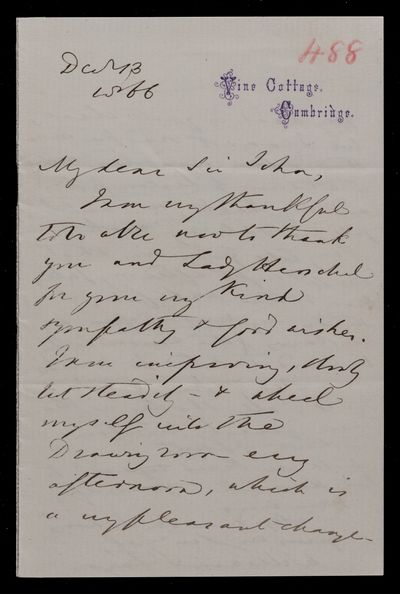 488
Dec 13
1866
Vine Cottage.
Cambridge.
My dear Sir John,
I am very thankful
to be able now to thank
you and Lady Herschel
for your very kind
sympathy & good wishes.
I am improving, slowly
but steadily - & wheel
myself into the
Drawing room every
afternoon, which is
a very pleasant change -